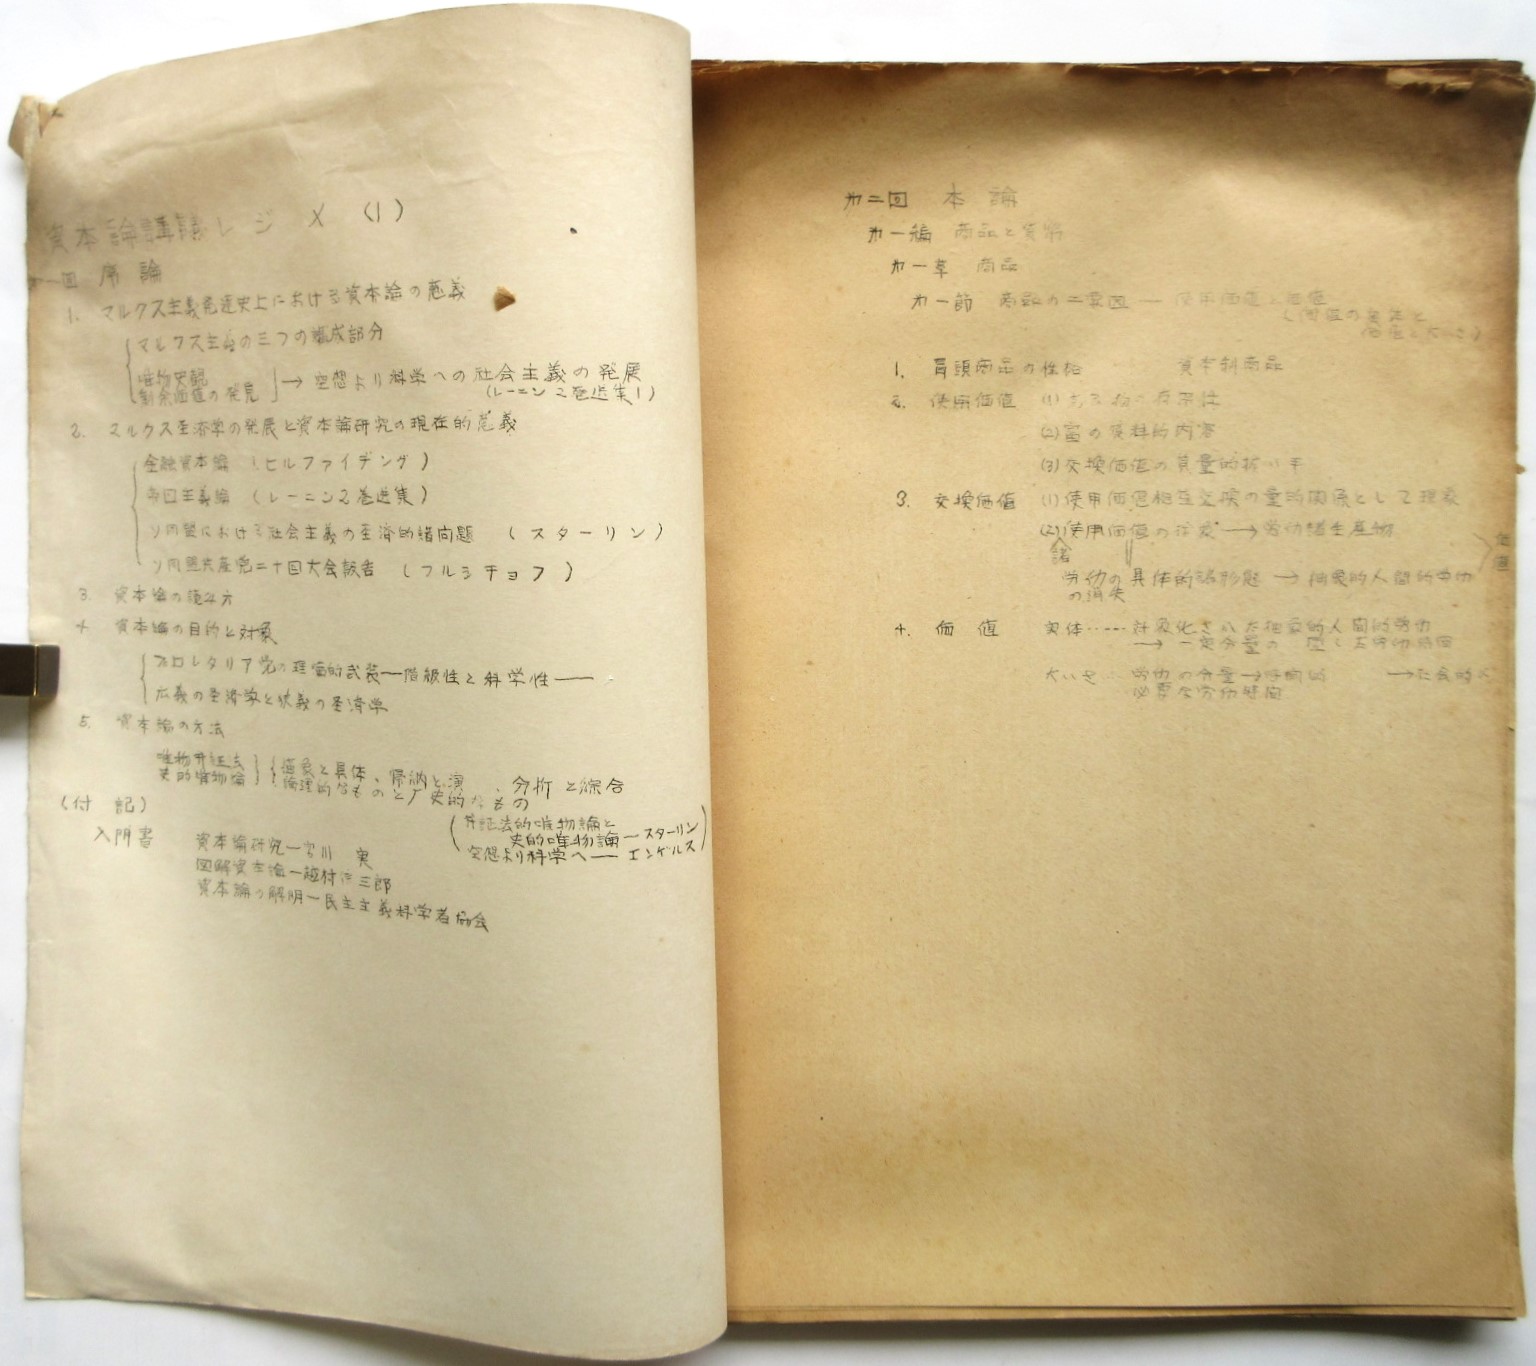 資本論講義レジメ (1)
カ一回 序論
1. マルクス主義発達史上における資本論の意義
マルクス主義の三つの構成部分
唯物史観
剰余価値の発見 → 空想より科学への社会主義の発展
(レーニン2巻選集1)
2. マルクス経済学の発展と資本論研究の現在的意義
金融資本論 (ヒルファイデング)
帝国主義論 (レーニン2巻選集)
ソ同盟における社会主義の経済的諸問題 (スターリン)
ソ同盟共産党二十回大会報告 (フルシチョフ)
3. 資本論の読み方
4 資本論の目的と対象
プロレタリア党の理論的武装—階級性と科学性—
広義の経済学と狭義の経済学
5. 資本論の方法
唯物弁証法
史的唯物論
抽象と具体、帰納と演、分析と綜合
論理的なものと歴史的なもの
(付記)
弁証法的唯物論と
史的唯物論—スターリン
空想より科学へ—エンゲルス
入門書 資本論研究—宮川 実
図解資本論—越村三郎
資本論の解明—民主主義科学者協会
カ二回 本論
カ一編 商品と貨幣
カ一章 商品
カ一節 商品の二要因— 使用価値と価値
(価値の実体と
価値の大いさ)
1. 冒頭商品の性格 資本制商品
2. 使用価値 (1)ある物の有用性
(2)富の質料的内容
(3)交換価値の質量的担い手
3. 交換価値 (1)使用価値相互交換の量的関係として現象
(2)使用価値の捨象→労働諸生産物
諸
労働の具体的諸形態→抽象的人間的労働
の消失
価値
4. 価値 実体……対象化された抽象的人間的労働
→一定分量の
大いさ… 労働の分量→時間
→社会的
必要な労働時間